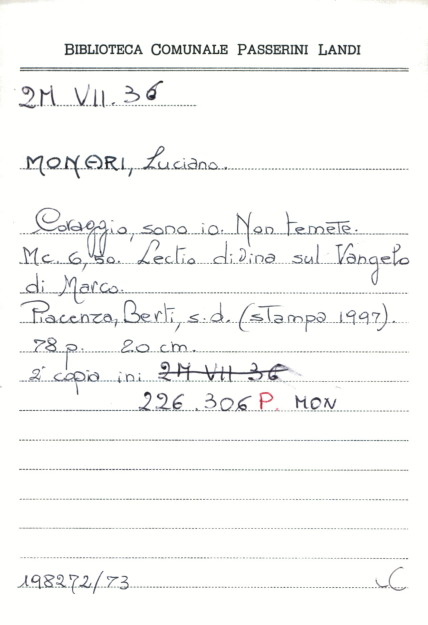 BIBLIOTECA COMUNALE PASSERINI LANDI
2M VII. 36
MONARI, Luciano.
Coraggio, sono io. Non temete.
Mc. 6,50. Lectio divina sul Vangelo
di Marco.
Piacenza, Berti, s.d. (stampa 1997).
78 p. 20 cm.
2ª copia in: 2M VII 36
226.306 P. MON
198272/73